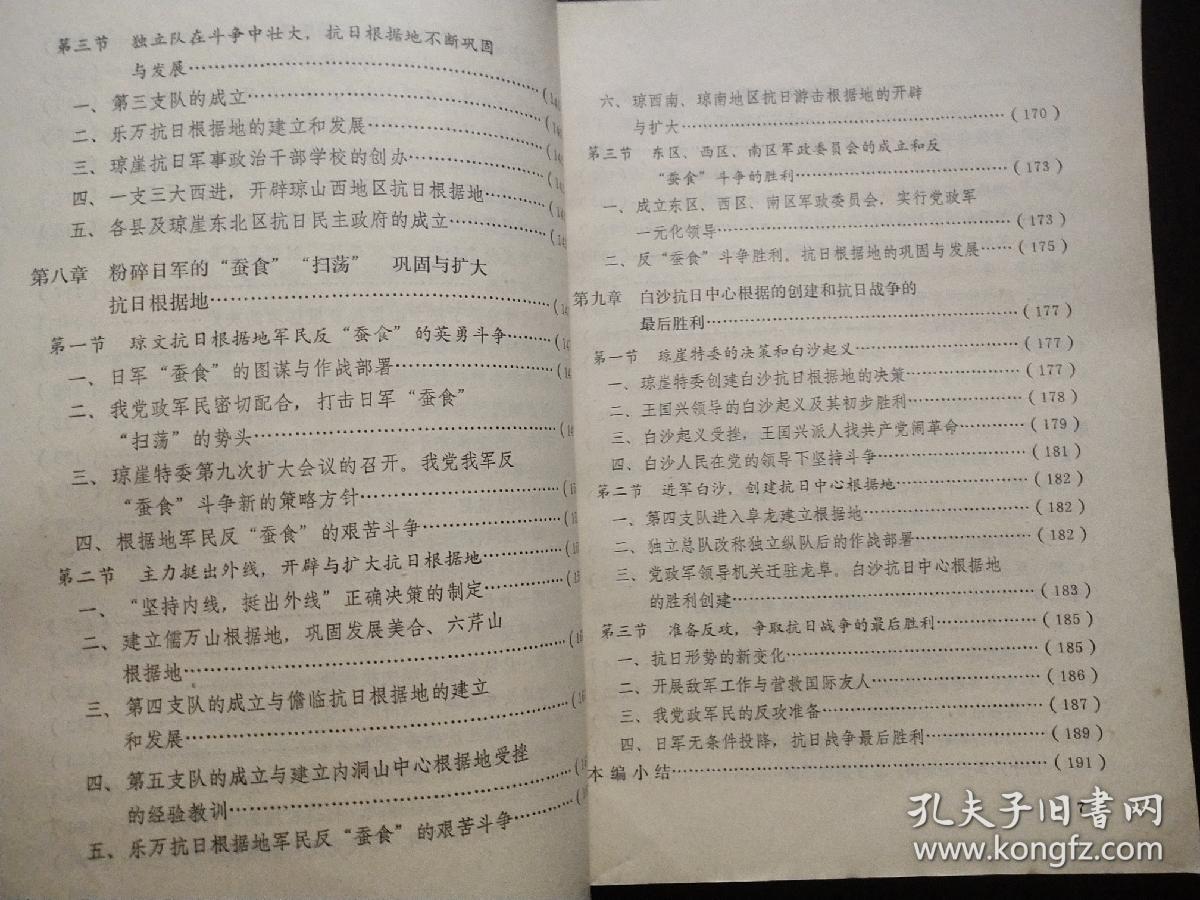 第三节 独立队在斗争中壮大，抗日根据地不断巩固
与发展……………………(14
一、第三支队的成立……………………(14
二、乐万抗日根据地的建立和发展……………………(14
三、琼崖抗日军事政治干部学校的创办……………(14
四、一支三大西进，开辟琼山西地区抗日根据地……(14
五、各县及琼崖东北区抗日民主政府的成立…………(14
第八章 粉碎日军的“蚕食”“扫荡” 巩固与扩大
抗日根据地……………………(14
第一节 琼文抗日根据地军民反“蚕食”的英勇斗争……(14
一、日军“蚕食”的图谋与作战部署……………………(14
二、我党政军民密切配合，打击日军“蚕食”
“扫荡”的势头……………………(14
三、琼崖特委第九次扩大会议的召开。我党我军反
“蚕食”斗争新的策略方针……………………(1
四、根据地军民反“蚕食”的艰苦斗争……………………(1
第二节 主力挺出外线，开辟与扩大抗日根据地…………(1
一、“坚持内线，挺出外线”正确决策的制定…………(15
二、建立儒万山根据地，巩固发展美合、六芹山
根据地……………………(1
三、第四支队的成立与儋临抗日根据地的建立
和发展……………………(16
四、第五支队的成立与建立内洞山中心根据地受挫
的经验教训……………………(1
五、乐万抗日根据地军民反“蚕食”的艰苦斗争………(1
六、琼西南、琼南地区抗日游击根据地的开辟
与扩大……………………(170)
第三节 东区、西区、南区军政委员会的成立和反
“蚕食”斗争的胜利……………………(173)
一、成立东区、西区、南区军政委员会，实行党政军
一元化领导……………………(173)
二、反“蚕食”斗争胜利，抗日根据地的巩固与发展……(175)
第九章 白沙抗日中心根据的创建和抗日战争的
最后胜利……………………(177)
第一节 琼崖特委的决策和白沙起义……………………(177)
一、琼崖特委创建白沙抗日根据地的决策……………(177)
二、王国兴领导的白沙起义及其初步胜利……………(178)
三、白沙起义受挫，王国兴派人找共产党闹革命………(179)
四、白沙人民在党的领导下坚持斗争……………………(181)
第二节 进军白沙，创建抗日中心根据地………………(182)
一、第四支队进入阜龙建立根据地……………………(182)
二、独立总队改称独立纵队后的作战部署……………(182)
三、党政军领导机关迁驻龙阜。白沙抗日中心根据地
的胜利创建……………………(183)
第三节 准备反攻，争取抗日战争的最后胜利…………(185)
一、抗日形势的新变化……………………(185)
二、开展敌军工作与营救国际友人……………………(186)
三、我党政军民的反攻准备……………………(187)
四、日军无条件投降，抗日战争最后胜利……………(189)
本编小结……………………(191)
7
孔夫子旧书网
www.kongfz.com